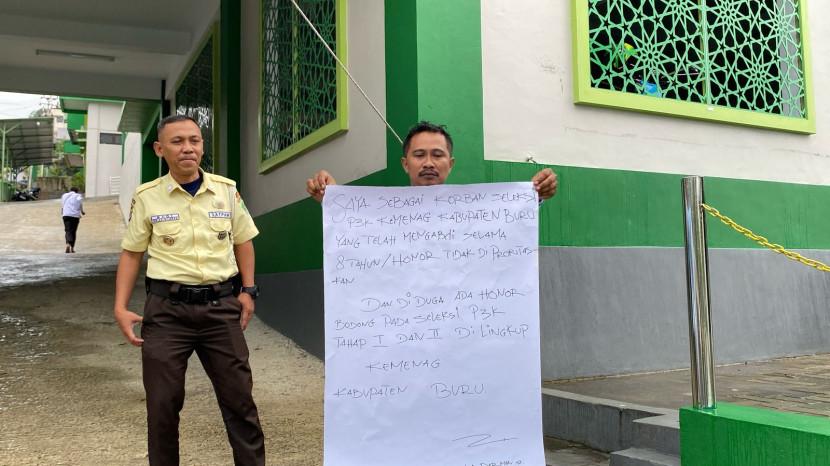 SATPAM
SAYA SEBAGAI KORBAN SELEKSI
P3K KEMENAG KABUPATEN BURU
YANG TELAH MENGABDI SELAMA
8 TAHUN/HONOR TIDAK DI PRIORITAS-
KAN
DAN DI DUGA ADA HONOR
BODONG PADA SELEKSI P3K
TAHAP I DAN II DI LINGKUP
KEMENAG
KABUPATEN BURU.